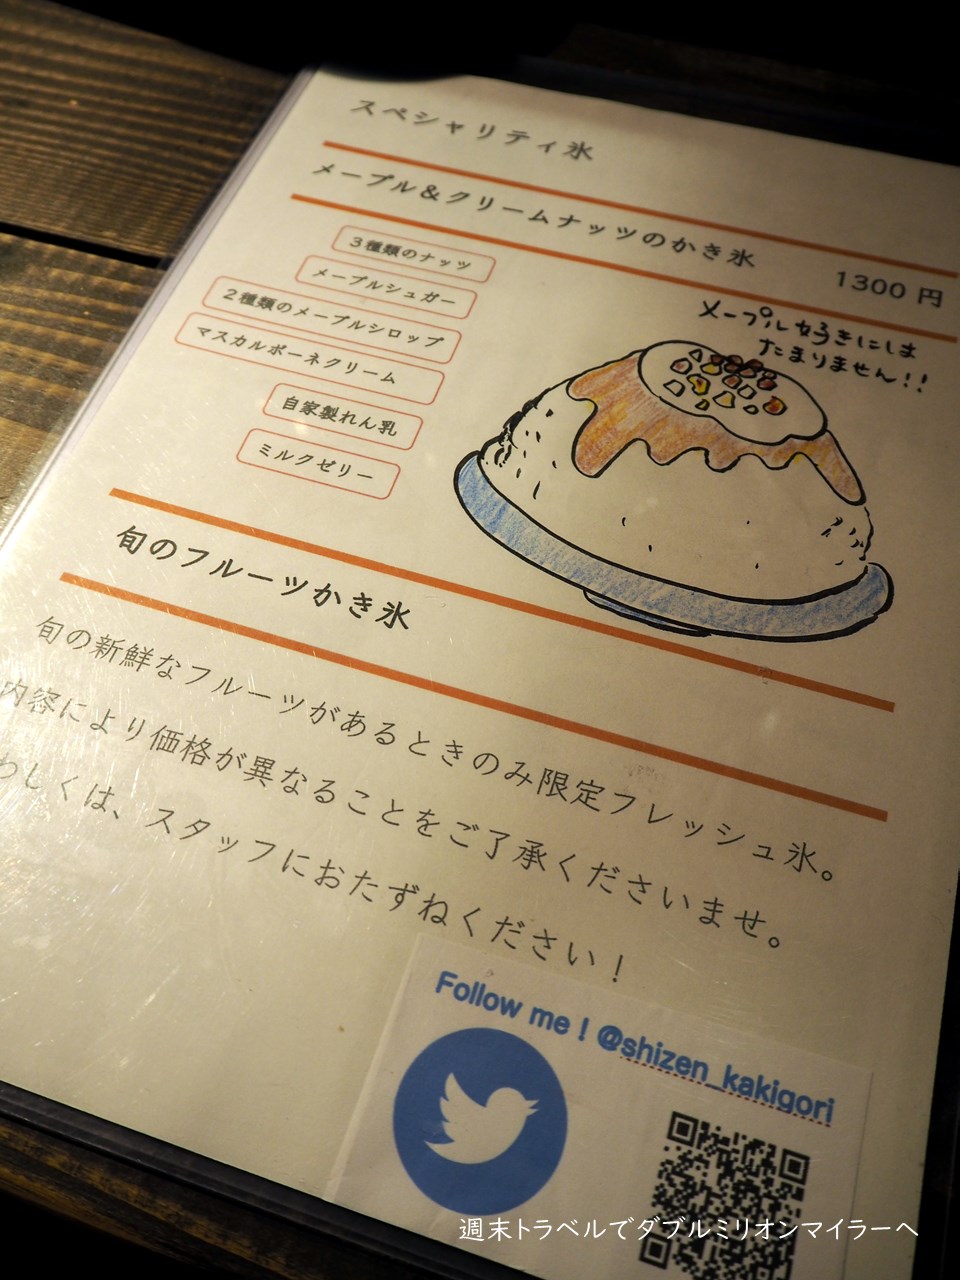 スペシャリティ氷
メープル＆クリームナッツのかき氷
1300 円
３種類のナッツ
メープルシュガー
２種類のメープルシロップ
マスカルポーネクリーム
自家製れん乳
ミルクゼリー
メープル好きには
たまりません!!
旬のフルーツかき氷
旬の新鮮なフルーツがあるときのみ限定フレッシュ氷。
内容により価格が異なることをご了承くださいませ。
わしくは、スタッフにおたずねください！
Follow me ! @shizen_kakigori
週末トラベルでダブルミリオンマイラーへ